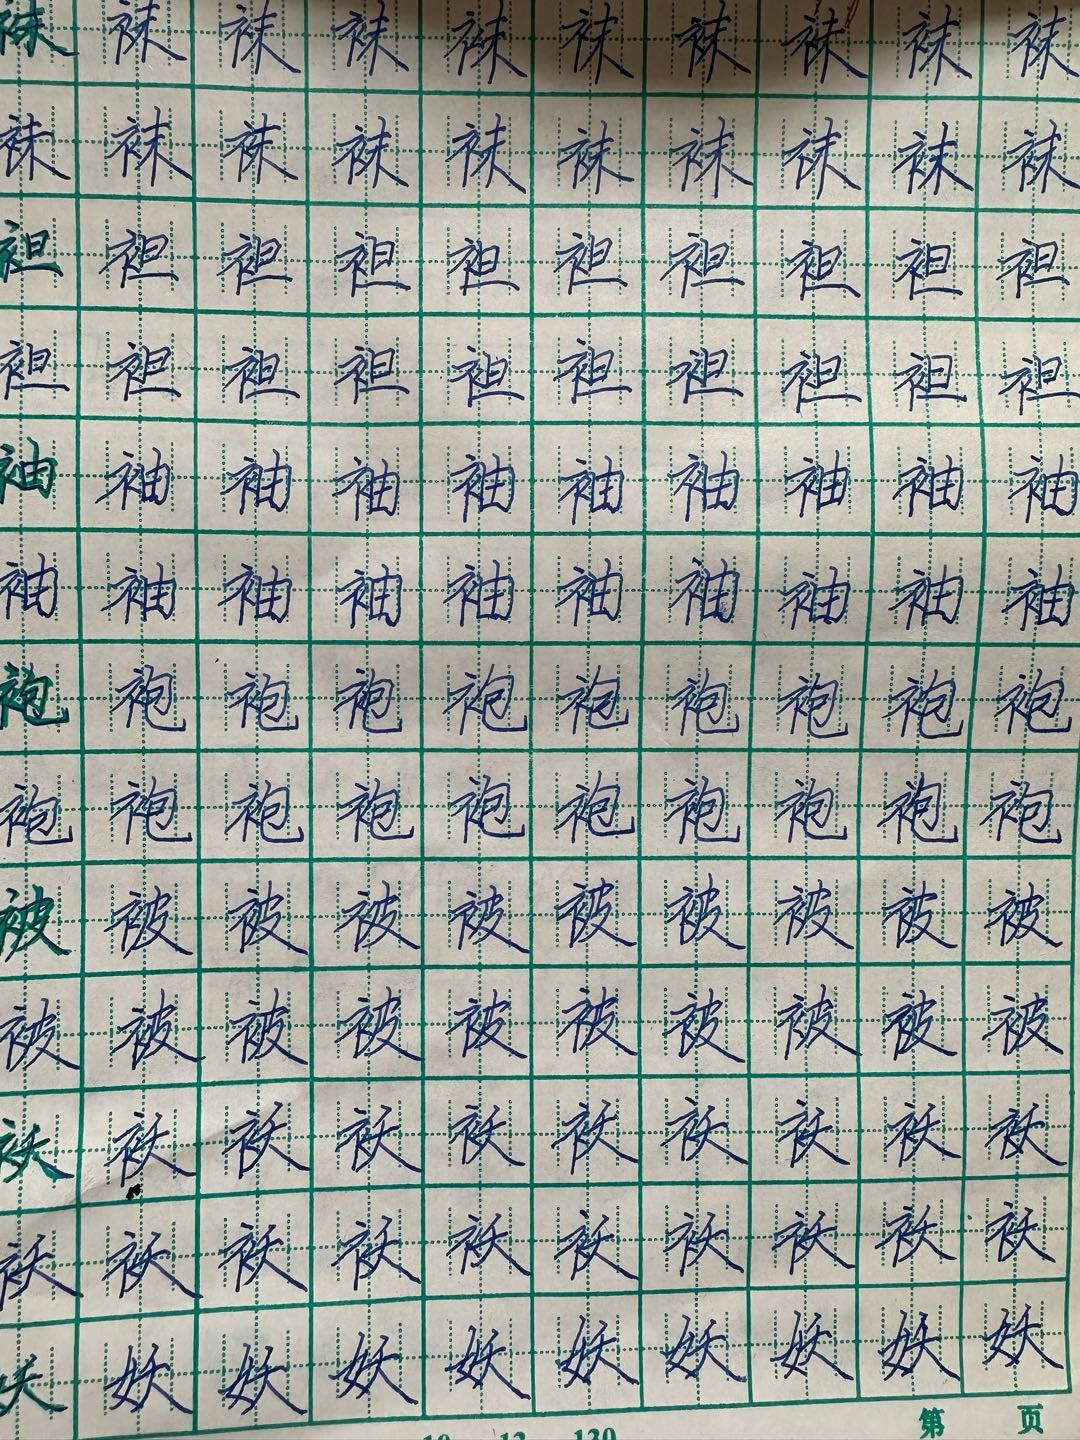 袜袜袜袜袜袜袜袜袜袜
袜袜袜袜袜袜袜袜袜袜
袒袒袒袒袒袒袒袒袒袒
袒袒袒袒袒袒袒袒袒袒
袖袖袖袖袖袖袖袖袖袖
袖袖袖袖袖袖袖袖袖袖
袍袍袍袍袍袍袍袍袍袍
袍袍袍袍袍袍袍袍袍袍
被被被被被被被被被被
被被被被被被被被被被
袄袄袄袄袄袄袄袄袄袄
袄袄袄袄袄袄袄袄袄袄
妖妖妖妖妖妖妖妖妖妖
第 页